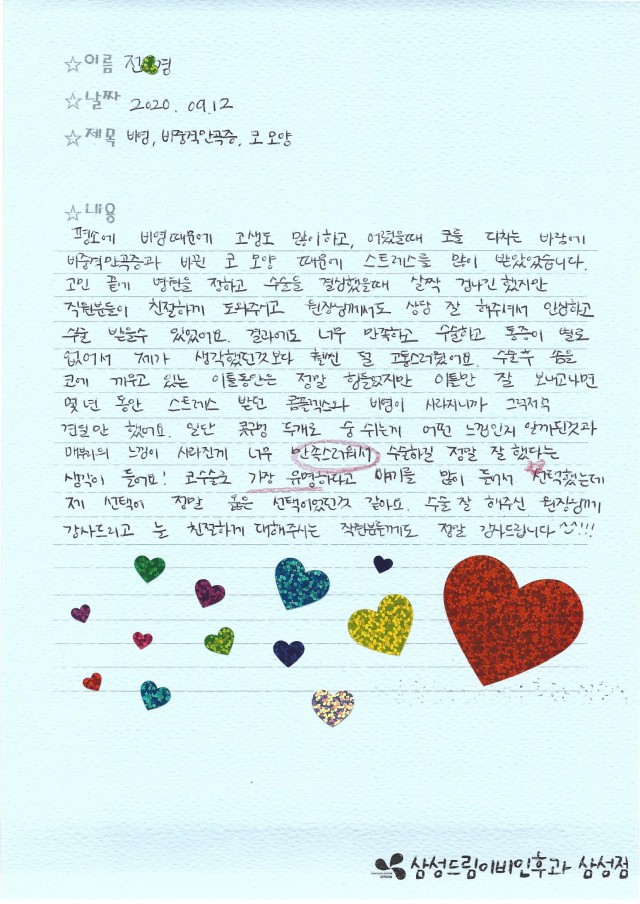 ☆이름 전 영
☆날짜 2020. 09.12
☆제목 비염, 비중격만곡증, 코 모양
☆내용
평소에 비염때문에 고생도 많이하고, 어렸을때 코를 다치는 바람에
비중격만곡증과 바뀐 코 모양 때문에 스트레스를 많이 받았었습니다.
고민 끝에 병원을 정하고 수술을 결심했을때 살짝 겁나긴 했지만
직원분들이 친절하게 도와주시고 원장님께서도 상담 잘 해주셔서 안심하고
수술 받을수 있었어요. 결과에도 너무 만족하고 수술하고 통증이 별로
없어서 제가 생각했던것보다 훨씬 덜 고통스러웠어요. 수술후 솜을
코에 끼우고 있는 이틀동안은 정말 힘들었지만 이틀만 잘 보내고나면
몇 년 동안 스트레스 받던 콤플렉스와 비염이 사라지니까 그럭저럭
견딜만 했어요. 일단 콧구멍 두개로 숨 쉬는게 어떤 느낌인지 알게된것과
매부리의 느낌이 사라진게 너무 만족스러워서 수술하길 정말 잘 했다는
생각이 들어요! 코수술로 가장 유명하다고 얘기를 많이 들어서 선택했는데
제 선택이 정말 옳은 선택이었던것 같아요. 수술 잘 해주신 원장님께
감사드리고 늘 친절하게 대해주시는 직원분들께도 정말 감사드립니다 ^^!!!
삼성드림이비인후과 삼성점